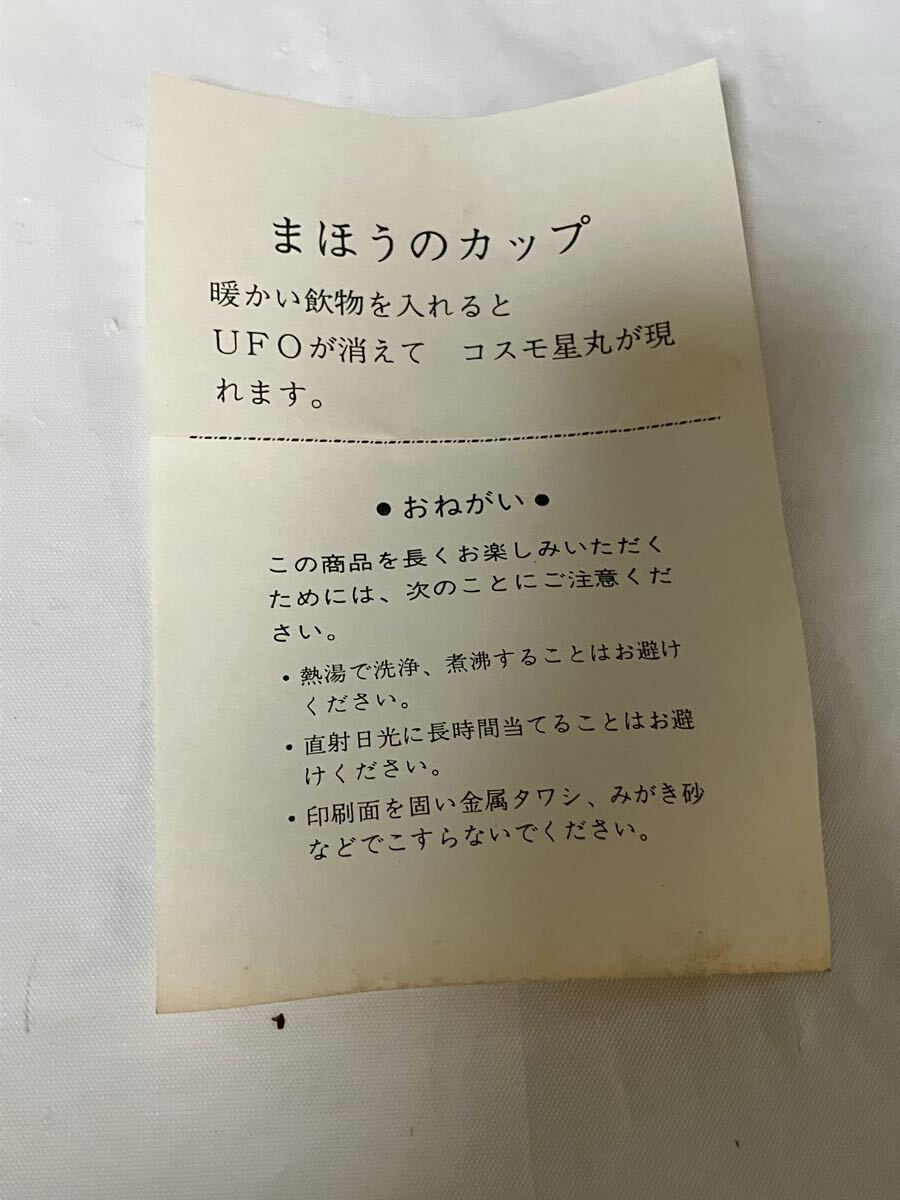 まほうのカップ
暖かい飲物を入れると
UFOが消えて コスモ星丸が現
れます。
●おねがい●
この商品を長くお楽しみいただく
ためには、次のことにご注意くだ
さい。
・熱湯で洗浄、煮沸することはお避け
ください。
・直射日光に長時間当てることはお避
けください。
・印刷面を固い金属タワシ、みがき砂
などでこすらないでください。